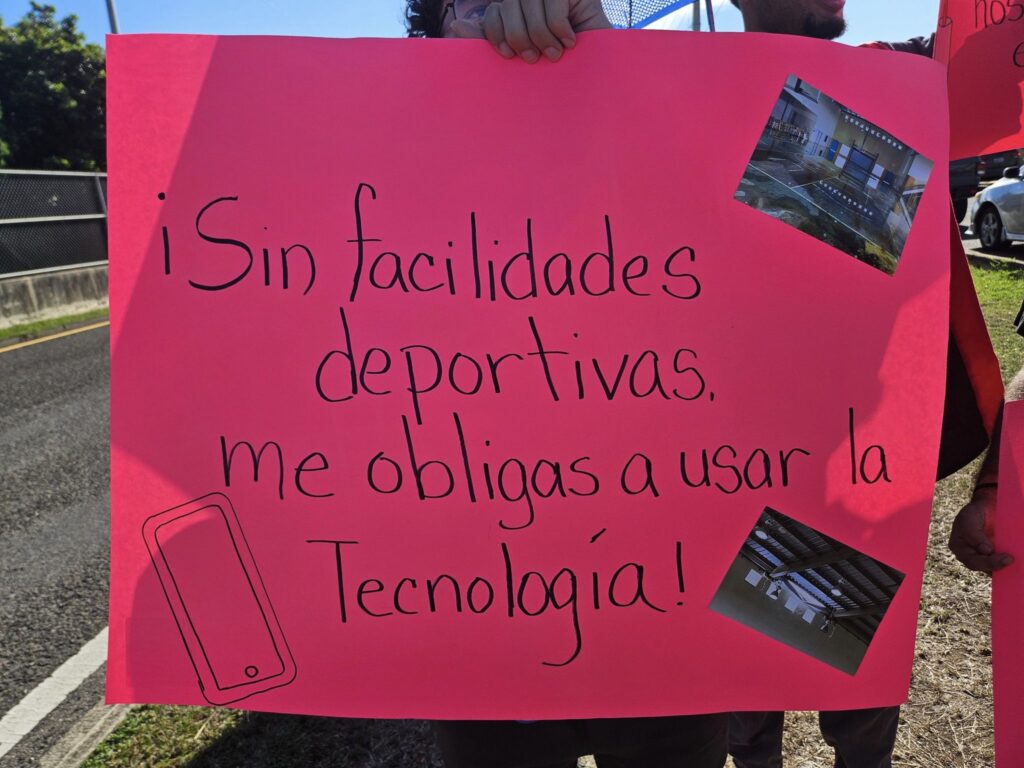 ¡Sin facilidades
deportivas.
me obligas a usar la
Tecnología!
nos
e